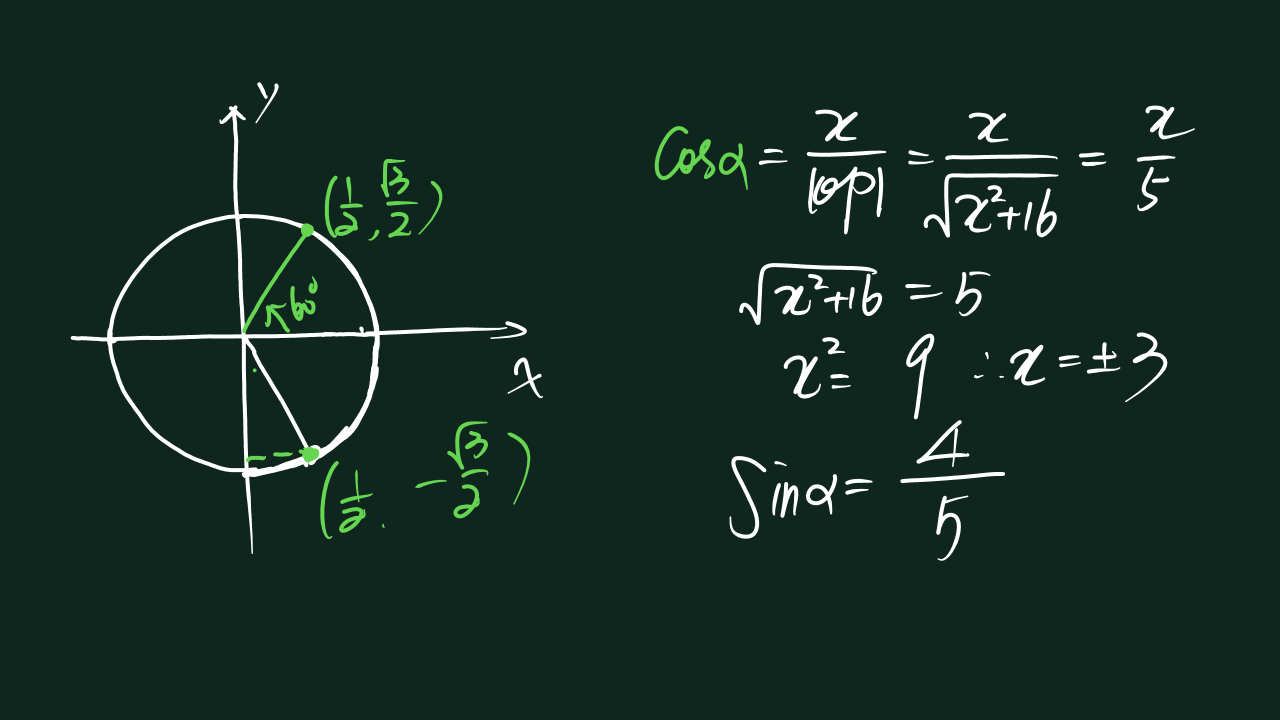 y
(1/2, √3/2)
60°
x
(1/2, -√3/2)
cosα = x/|op| = x/√(x²+16) = x/5
√(x²+16) = 5
x² = 9 ∴ x = ±3
sinα = 4/5